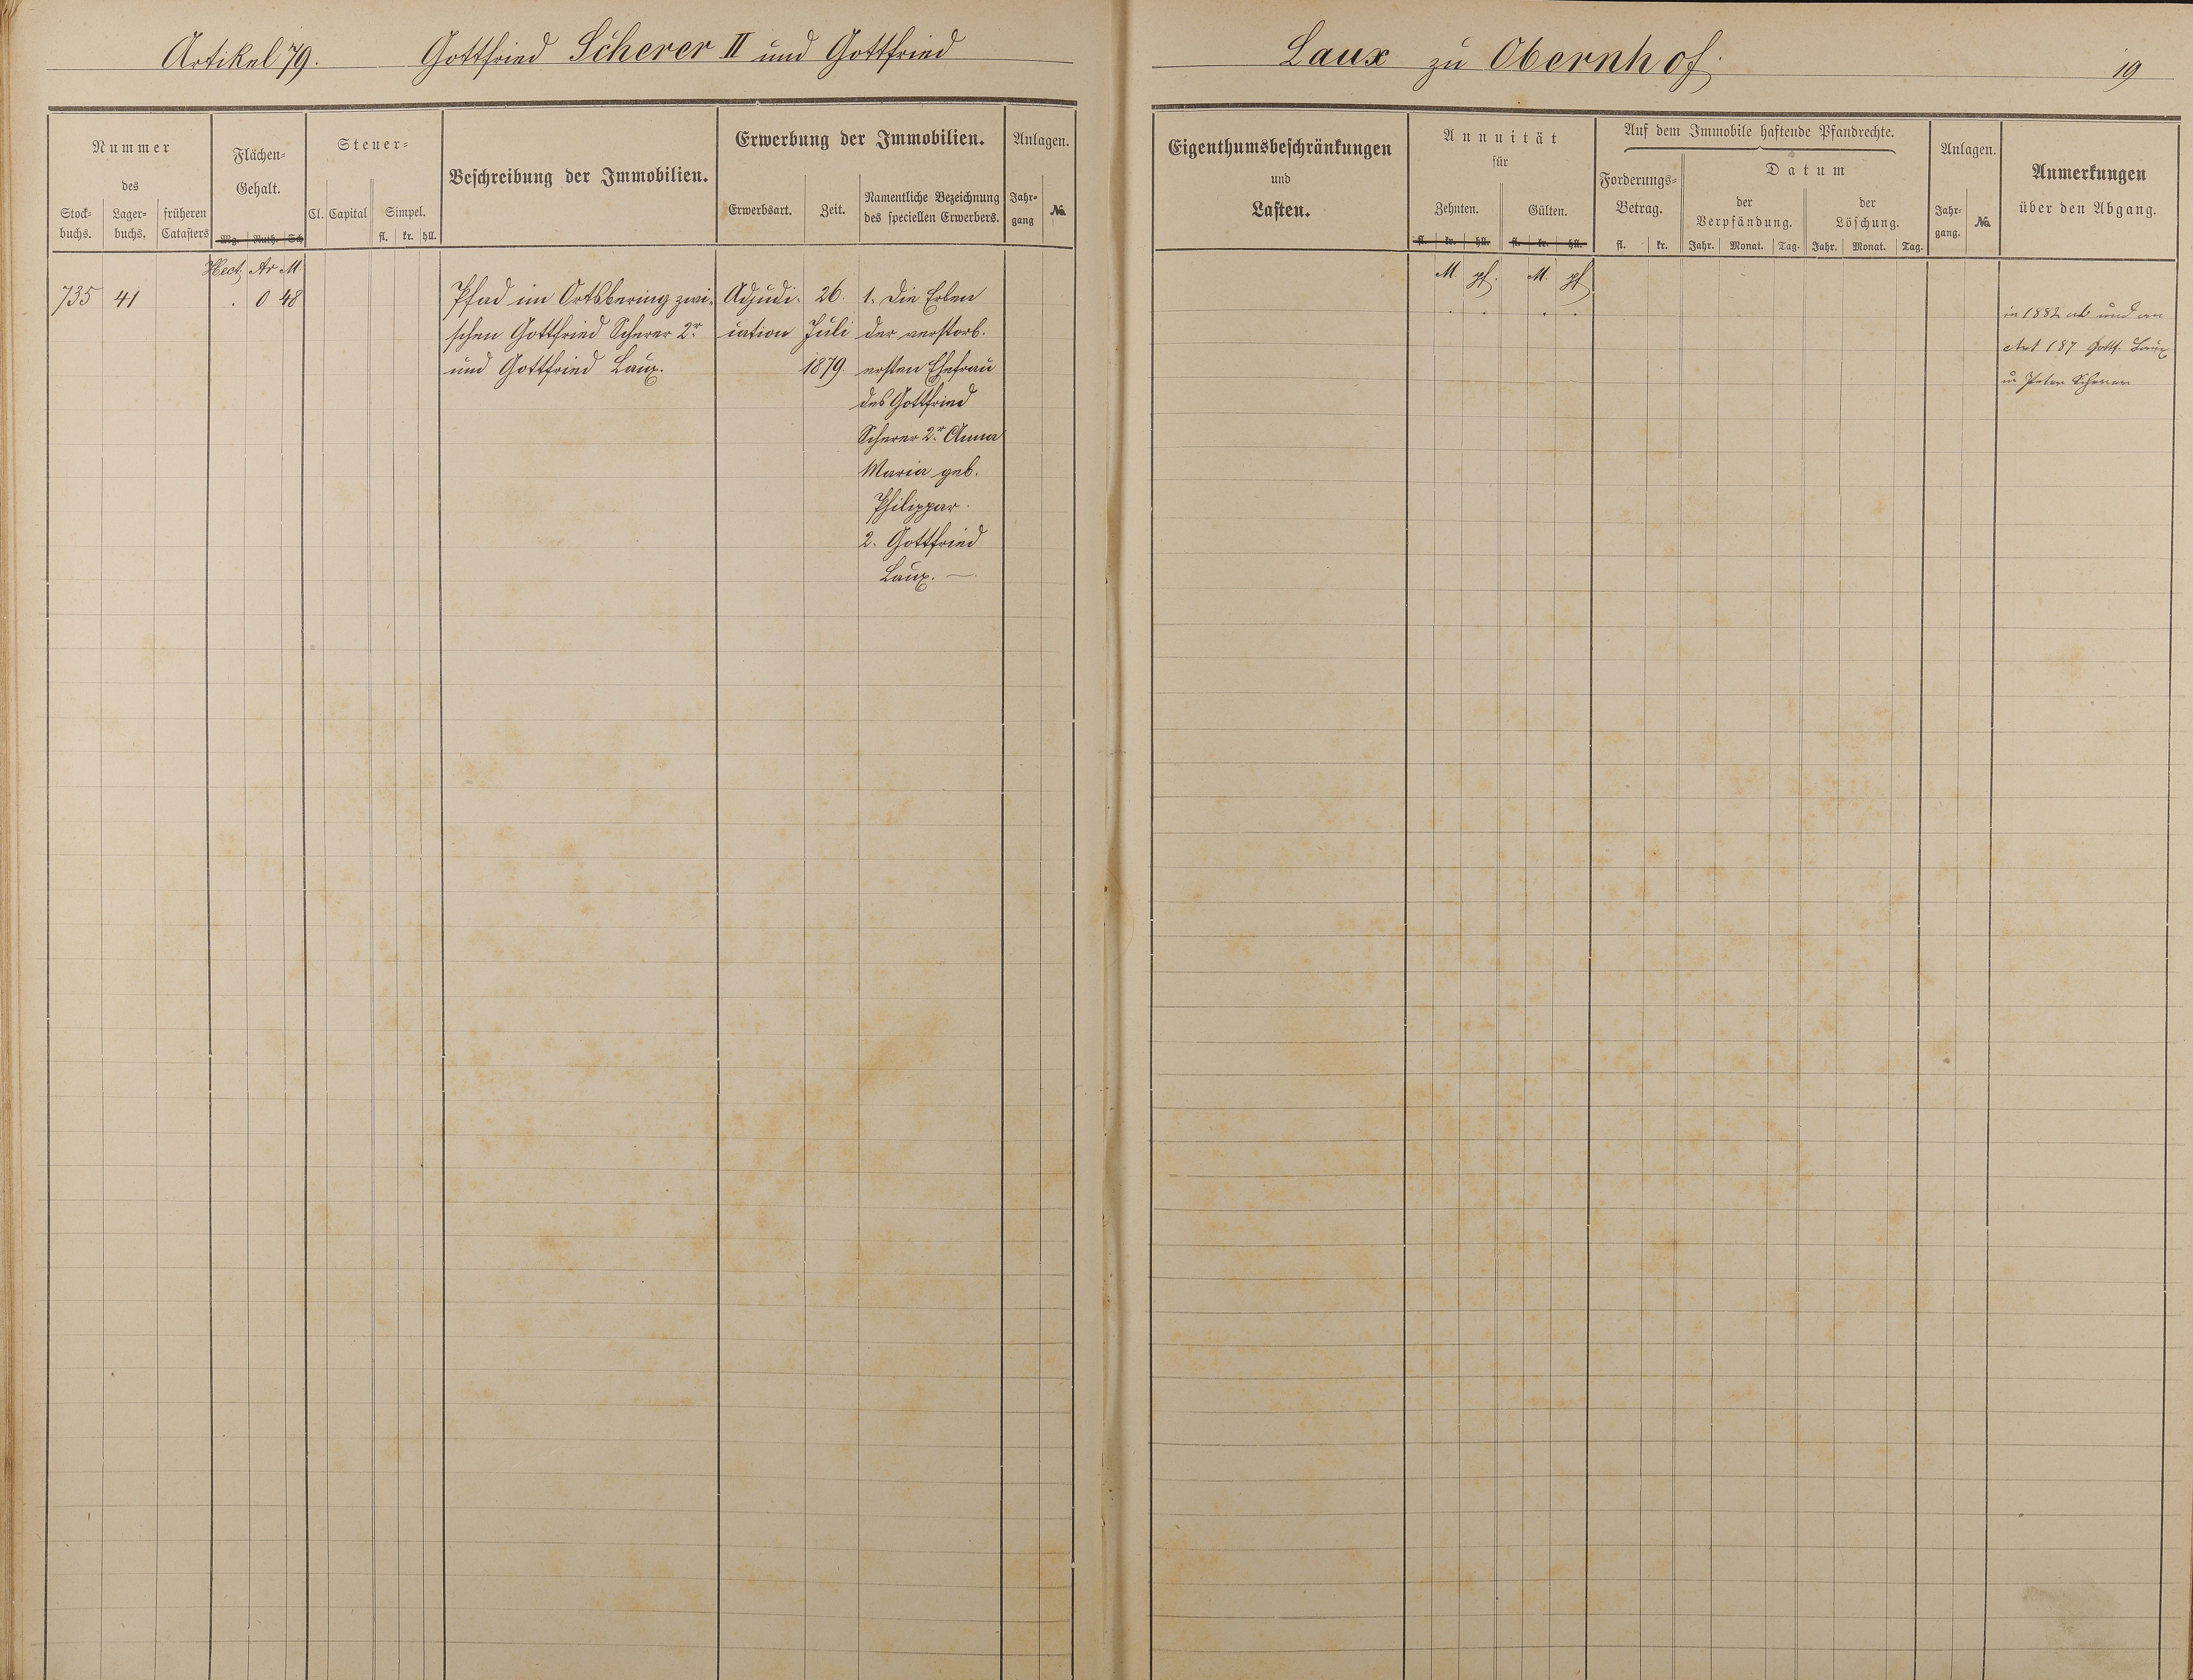 Artikel 79. Gottfried Scherer II und Gottfried Laux zu Obernhof. 19
Nummer
des
Stock-
buchs.
Lager-
buchs.
früheren
Catasters
Flächen-
Gehalt.
Mg. Ruth. Sch
Steuer-
Cl. Capital Simpel.
fl. kr. hll.
Beschreibung der Immobilien.
Erwerbung der Immobilien.
Erwerbsart. Zeit.
Namentliche Bezeichnung
des speciellen Erwerbers.
Anlagen.
Jahr-
gang
No.
Eigenthumsbeschränkungen
und
Lasten.
Annuität
für
Zehnten. Gülten.
fl. kr. hll. fl. kr. hll.
Auf dem Immobile haftende Pfandrechte.
Forderungs-
Betrag.
fl. kr.
Datum
der
Verpfändung.
Jahr. Monat. Tag.
der
Löschung.
Jahr. Monat. Tag.
Anlagen.
Jahr-
gang.
No.
Anmerkungen
über den Abgang.
Hect. Ar M.
M. pf. M. pf
735 41 . 0 48
Pfad im Ortsbering zwi-
schen Gottfried Scherer 2r.
und Gottfried Laux.
Adjudi-
cation
26.
Juli
1879.
1. Die Erben
der verstorb.
ersten Ehefrau
des Gottfried
Scherer 2r. Anna
Maria geb.
Philippar.
2. Gottfried
Laux. —
in 1882 ab und an
Art 187 Gottf. Laux
u Peter Scherer